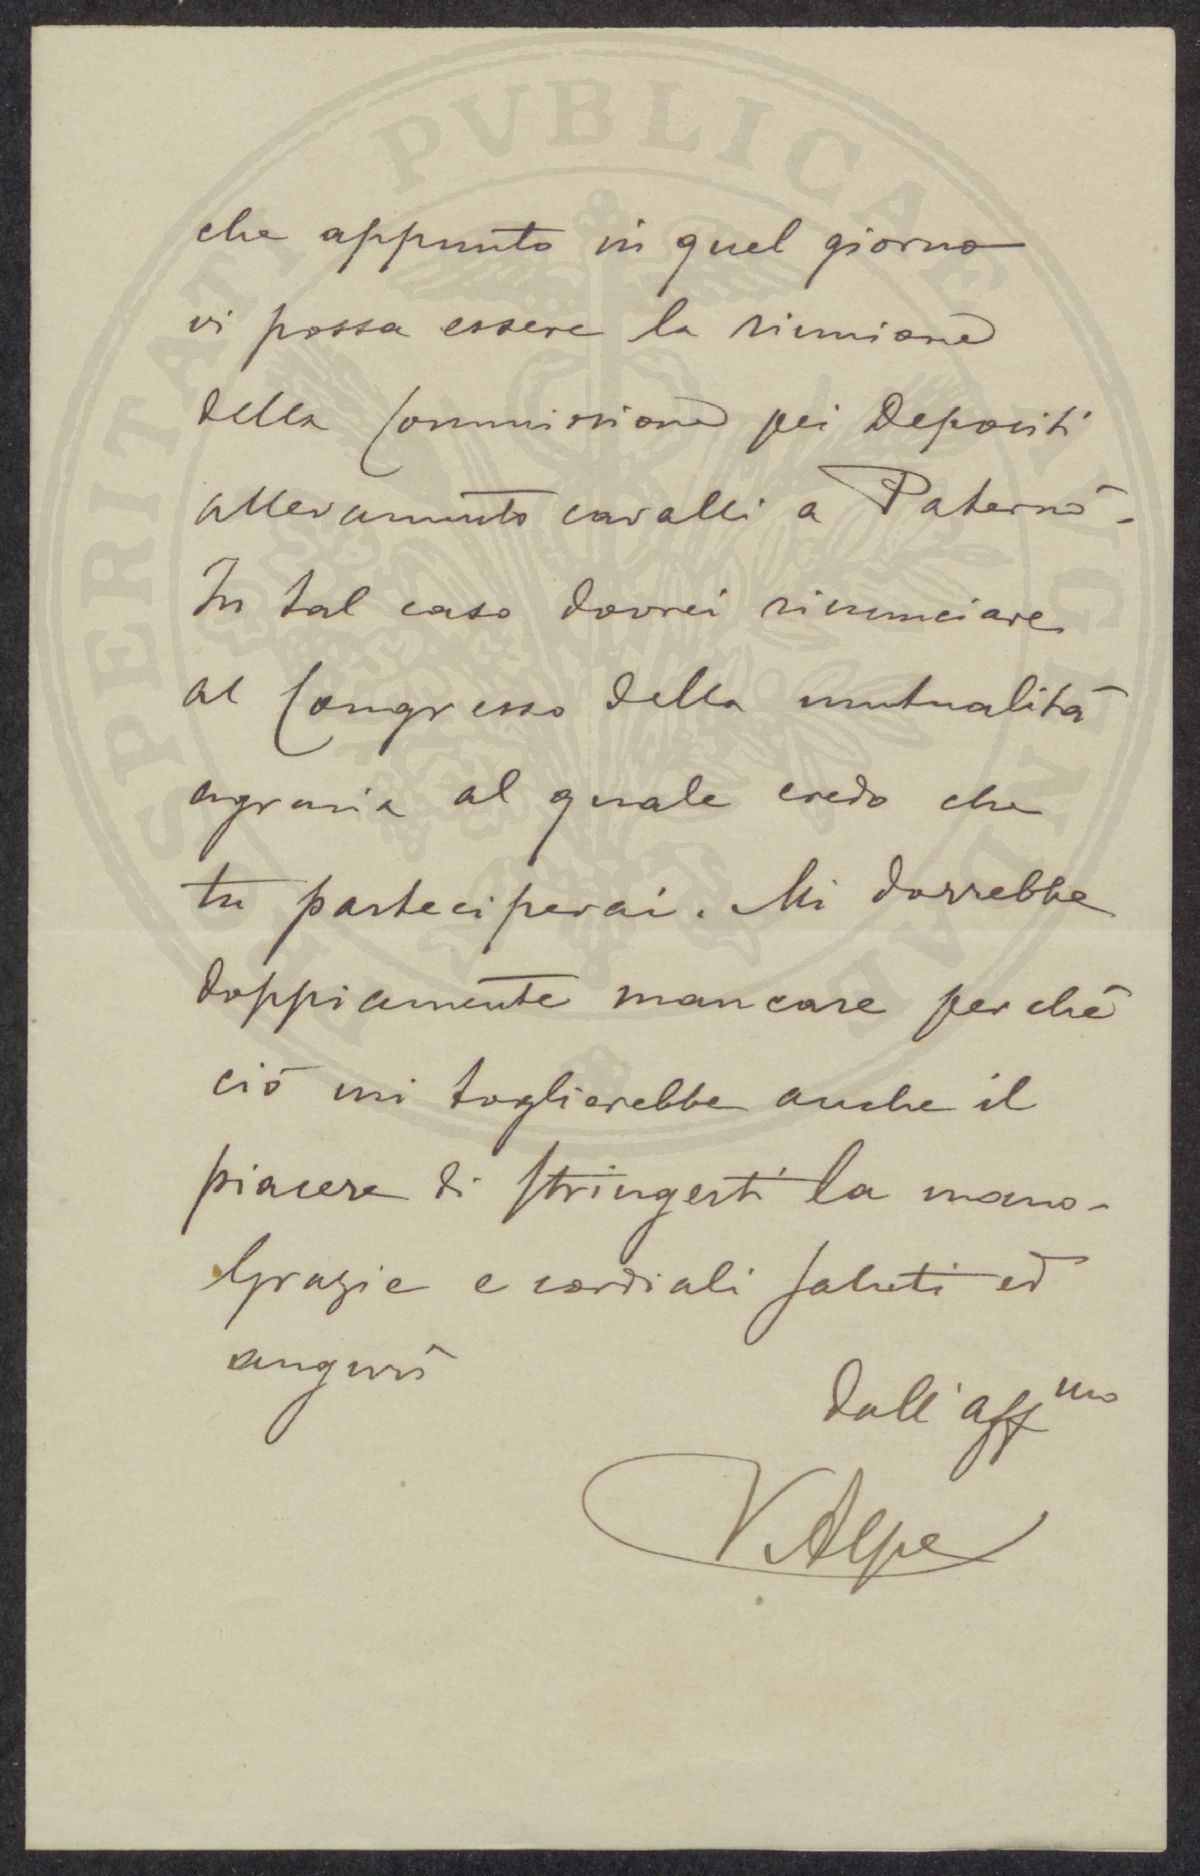 che appunto in quel giorno
vi possa essere la riunione
della Commissione pei Depositi
allevamento cavalli a Paternò -
In tal caso dovrei rinunciare
al Congresso della mutualità
agraria al quale credo che
tu parteciperai. Mi dorrebbe
doppiamente mancare perchè
ciò mi toglierebbe anche il
piacere di stringerti la mano -
Grazie e cordiali saluti ed
augurî
dall'aff.mo
V. Alpe